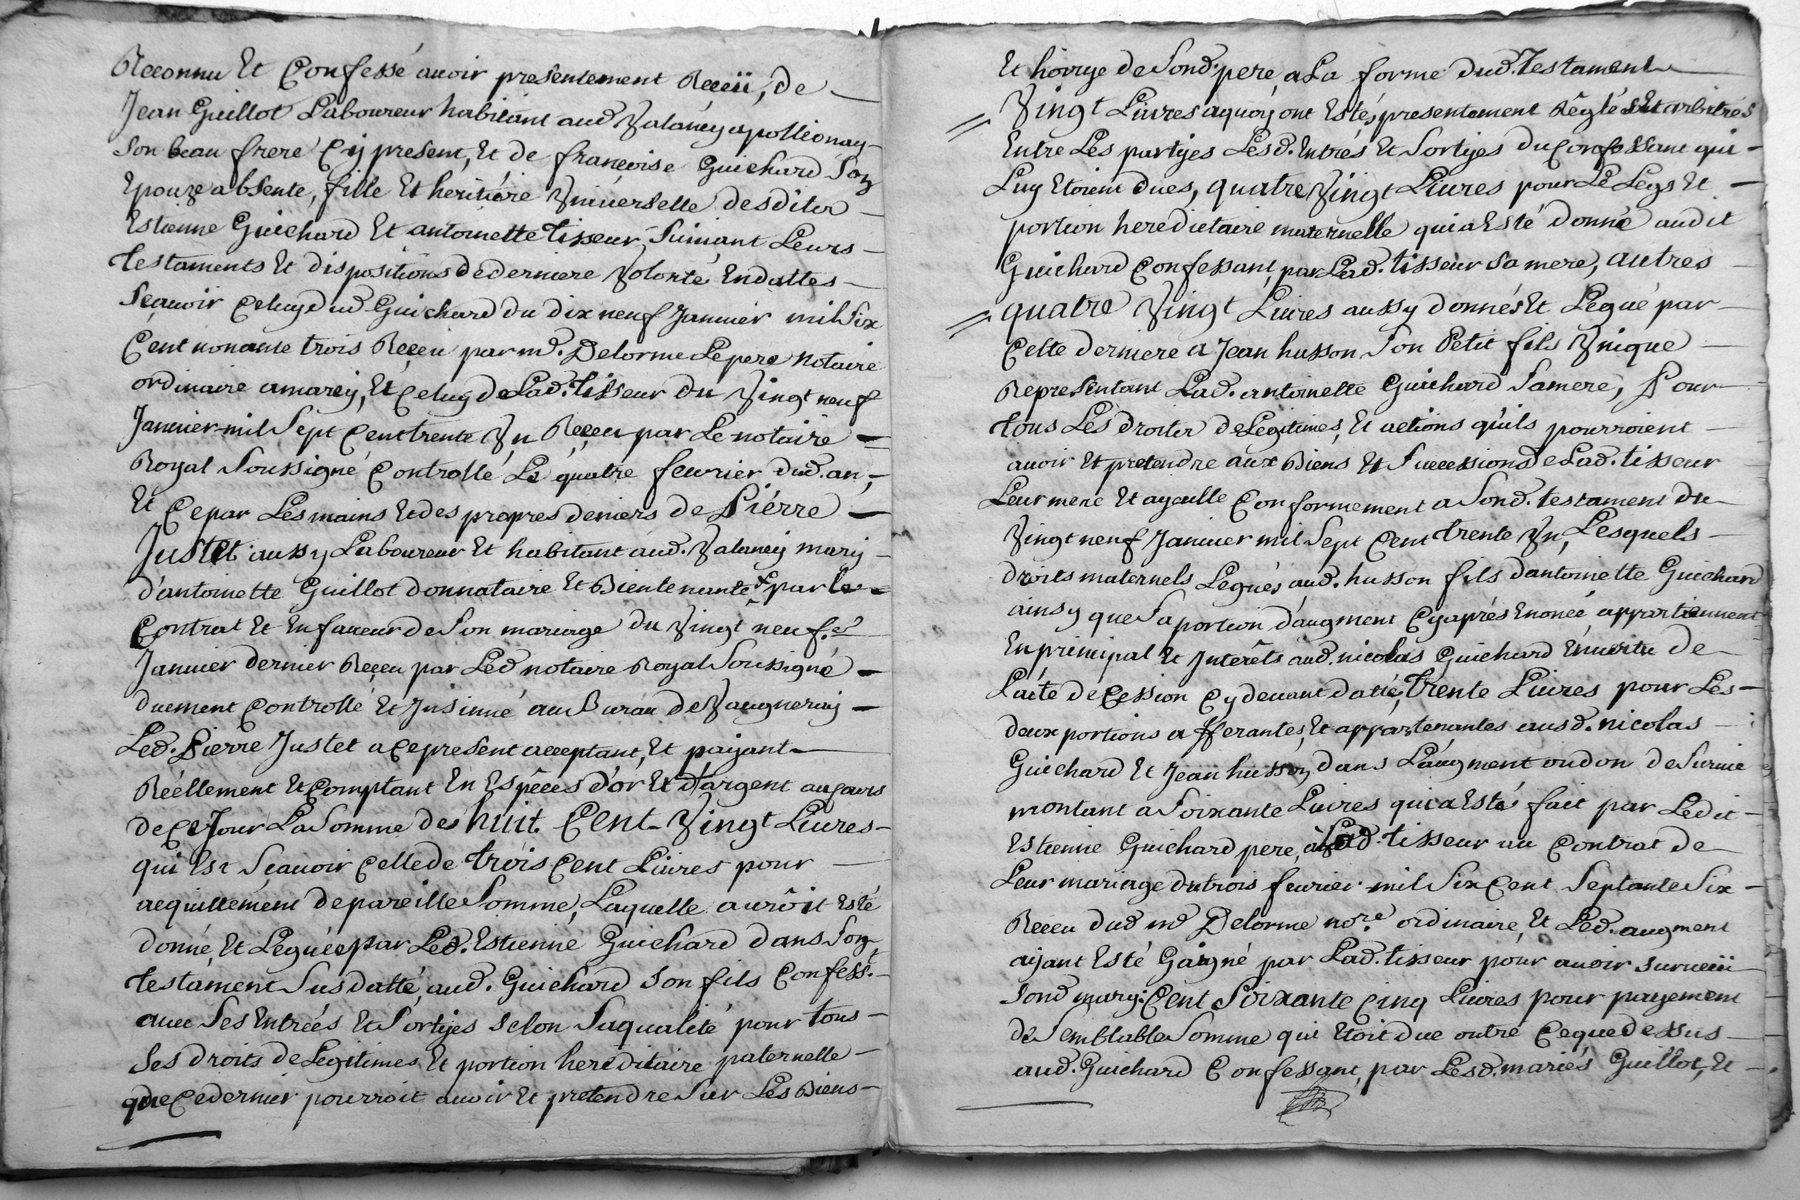 Reconnu Et Confessé avoir presentement Receü, de
Jean Guillot Laboureur habitant aud Valancy apollionay
Son beau frere Cy present, Et de francoise Guichard Son
Epouze absente, fille Et heritiére Vniverselle desdits
Estienne Guichard Et antoinette tisseur, Suiuant Leurs
testaments Et dispositions de derniere Volonté, Endattes
Scauoir Celuy dud Guichard du dix neuf Januier mil Six
Cent nonante trois Receu par me. Delorme Le pere notaire
ordinaire amarcy, Et Celuy de Lad. tisseur du Vingt neuf
Januier mil Sept Cent trente Vn Receu par Le notaire
Royal Soussigné Controllé Le quatre feurier dud. an,
Et Ce par Les mains Et des propres deniers de Piérre
Justet aussy Laboureur Et habitant aud. Valancy mary
d'antoinette Guillot donnataire Et Bientenante par le
Contrat Et En faueur de Son mariage du Vingt neuf.
Januier dernier Receu par Led notaire Royal Soussigné
duement Controllé Et Insinué au Bureau de Vaugneray
Led. Pierre Justet a Ce present acceptant, Et payant
Réellement Et Comptant En Espêces d'or Et d'argent au Cours
de Ce Jour La Somme des huit Cent Vingt Liures
qui Est Scauoir Celle de trois Cent Liures pour
acquittement de pareille Somme, Laquelle auroit Esté
donné, Et Leguée par Led. Estienne Guichard dans Son
testament Susdatté, aud. Guichard Son fils Confesst.
auec Ses Entrées Et Sortyes Selon Sa qualité pour tous
Ses droits de Legitimes, Et portion heréditaire paternelle
que Ce dernier pourroit auoir Et pretendre Sur Les Biens
Et hoirye de Sond. pere, a La forme dud. testament
Vingt Liures aquoy ont Estés presentement Règlés Et arbitrés
Entre Les partyes Lesd. Entrés Et Sortyes du Confessant qui
Luy Etoient dues, quatre Vingt Liures pour Le Legs Et
portion heredictaire maternelle qui a Esté donné audit
Guichard Confessant par Lad. tisseur Sa mere, autres
quatre Vingt Liures aussy donnés Et Legué par
Cette derniere a Jean husson Son Petit fils Vnique
Representant Lad. antoinette Guichard Sa mere, Pour
tous Les droits de Legitimes, Et actions quils pourroient
auoir Et pretendre aux Biens Et Successions de Lad. tisseur
Leur mere Et ayeulle Conformement a Sond. testament du
Vingt neuf Januier mil Sept Cent trente Vn, Lesquels
droits maternels Legués aud. husson fils d'antoinette Guichard
ainsy que Sa portion d'augment Cy aprés Enoncé appartiennent
En principal Et Interêts aud. nicolas Guichard En uertu de
Lacte de Cession Cy deuant datté, trente Liures pour Les
deux portions afferantes, Et appartenantes ausd. nicolas
Guichard Et Jean husson dans Laugment ou don de Suruie
montant a Soixante Liures qui a Esté fait par Ledit
Estienne Guichard pere, a Lad. tisseur au Contrat de
Leur mariage du trois feurier mil Six Cent Septante Six
Receu dud me Delorme nore. ordinaire, Et Led. augment
ayant Esté Gaigné par Lad. tisseur pour auoir Surueću
Sond mary. Cent Soixante Cinq Liures pour payement
de Semblable Somme qui Etoit due outre Ce que dessus
aud. Guichard Confessant par Lesd. mariés Guillot, Et